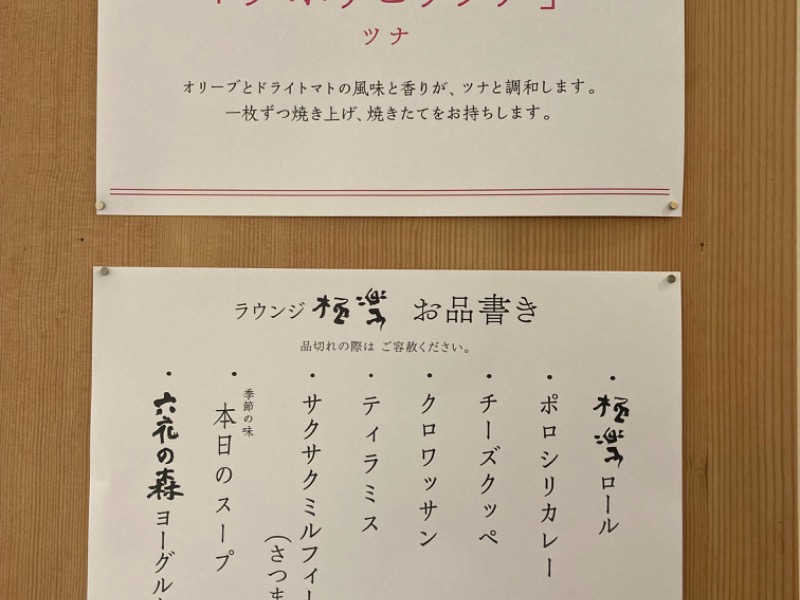 ツナ
オリーブとドライトマトの風味と香りが、ツナと調和します。
一枚ずつ焼き上げ、焼きたてをお持ちします。
ラウンジ 極楽 お品書き
品切れの際は ご容赦ください。
・極楽ロール
・ポロシリカレー
・チーズクッペ
・クロワッサン
・ティラミス
・サクサクミルフィー
（さつま
季節の味
・本日のスープ
・六花の森ヨーグル